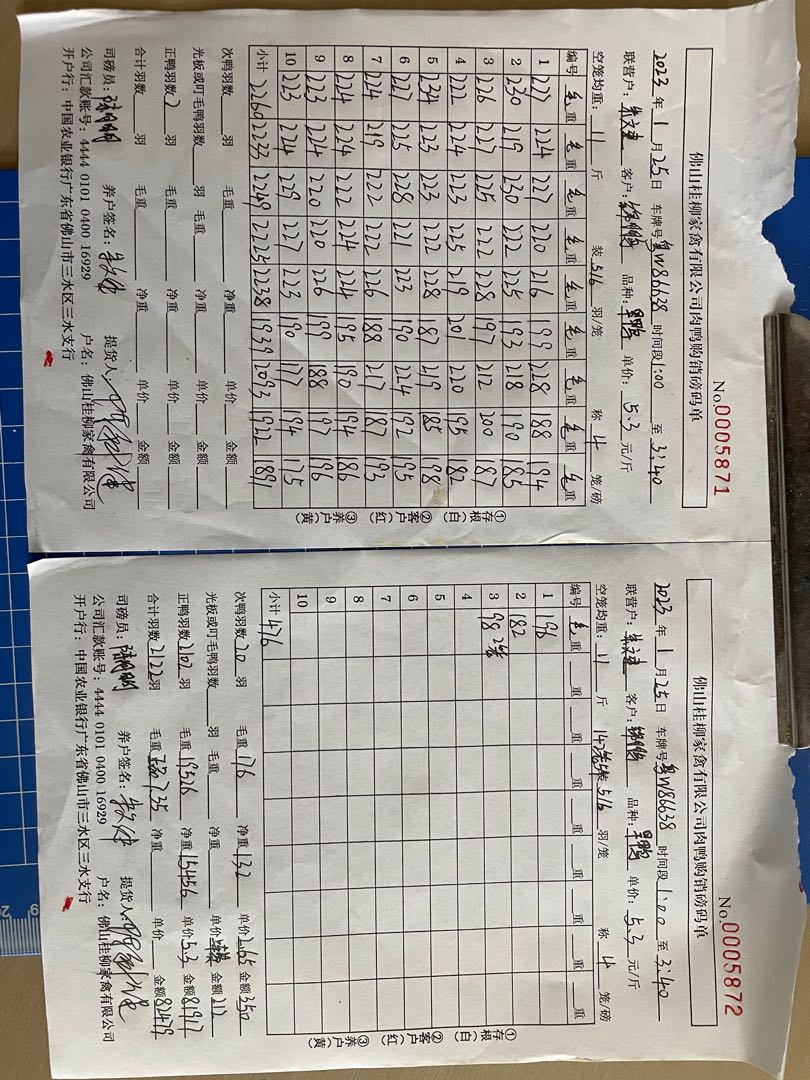 佛山桂柳家禽有限公司肉鸭购销磅码单
No.0005871
2023年1月25日 车牌号粤W86638 时间段1:00至3:40
联营户： 客户： 品种： 单价：5.3元/斤
空笼均重：11斤 装5/6羽/笼 称4笼/磅
编号 毛重 毛重 毛重 毛重 毛重 毛重 毛重 毛重 毛重
1 227 224 227 220 216 199 228 188 194
2 230 219 230 222 225 193 218 190 185
3 226 227 225 222 228 197 212 200 187
4 222 224 223 225 219 201 220 195 182
5 234 223 223 222 228 187 219 185 198
6 227 225 228 221 223 190 224 192 195
7 224 219 222 222 226 188 217 187 193
8 224 224 222 224 224 195 190 194 186
9 223 224 220 220 226 199 188 197 196
10 223 224 229 227 223 190 177 194 175
小计 2260 2233 2249 2225 2238 1939 2093 1922 1891
①存根（白） ②客户（红） ③养户（黄）
次鸭羽数 羽 毛重 净重 单价 金额
光板或叮毛鸭羽数 羽 毛重 净重 单价 金额
正鸭羽数 羽 毛重 净重 单价 金额
合计羽数 羽 毛重 净重 单价 金额
司磅员： 养户签名： 提货人：
公司汇款账号：4444 0101 0400 16929 户名：佛山桂柳家禽有限公司
开户行：中国农业银行广东省佛山市三水区三水支行
佛山桂柳家禽有限公司肉鸭购销磅码单
No.0005872
2023年1月25日 车牌号粤W86638 时间段1:00至3:40
联营户： 客户： 品种： 单价：5.3元/斤
空笼均重：11斤 装5/6羽/笼 称4笼/磅
编号 毛重 重 重 重 重 重 重 重 重
1 196
2 182
3 98 2笼
4
5
6
7
8
9
10
小计 476
①存根（白） ②客户（红） ③养户（黄）
次鸭羽数20羽 毛重176 净重132 单价2.65 金额350
光板或叮毛鸭羽数 羽 毛重 净重 单价 金额212
正鸭羽数2102羽 毛重19526 净重15456 单价5.3 金额81917
合计羽数2122羽 毛重 净重 单价 金额82479
司磅员： 养户签名： 提货人：
公司汇款账号：4444 0101 0400 16929 户名：佛山桂柳家禽有限公司
开户行：中国农业银行广东省佛山市三水区三水支行